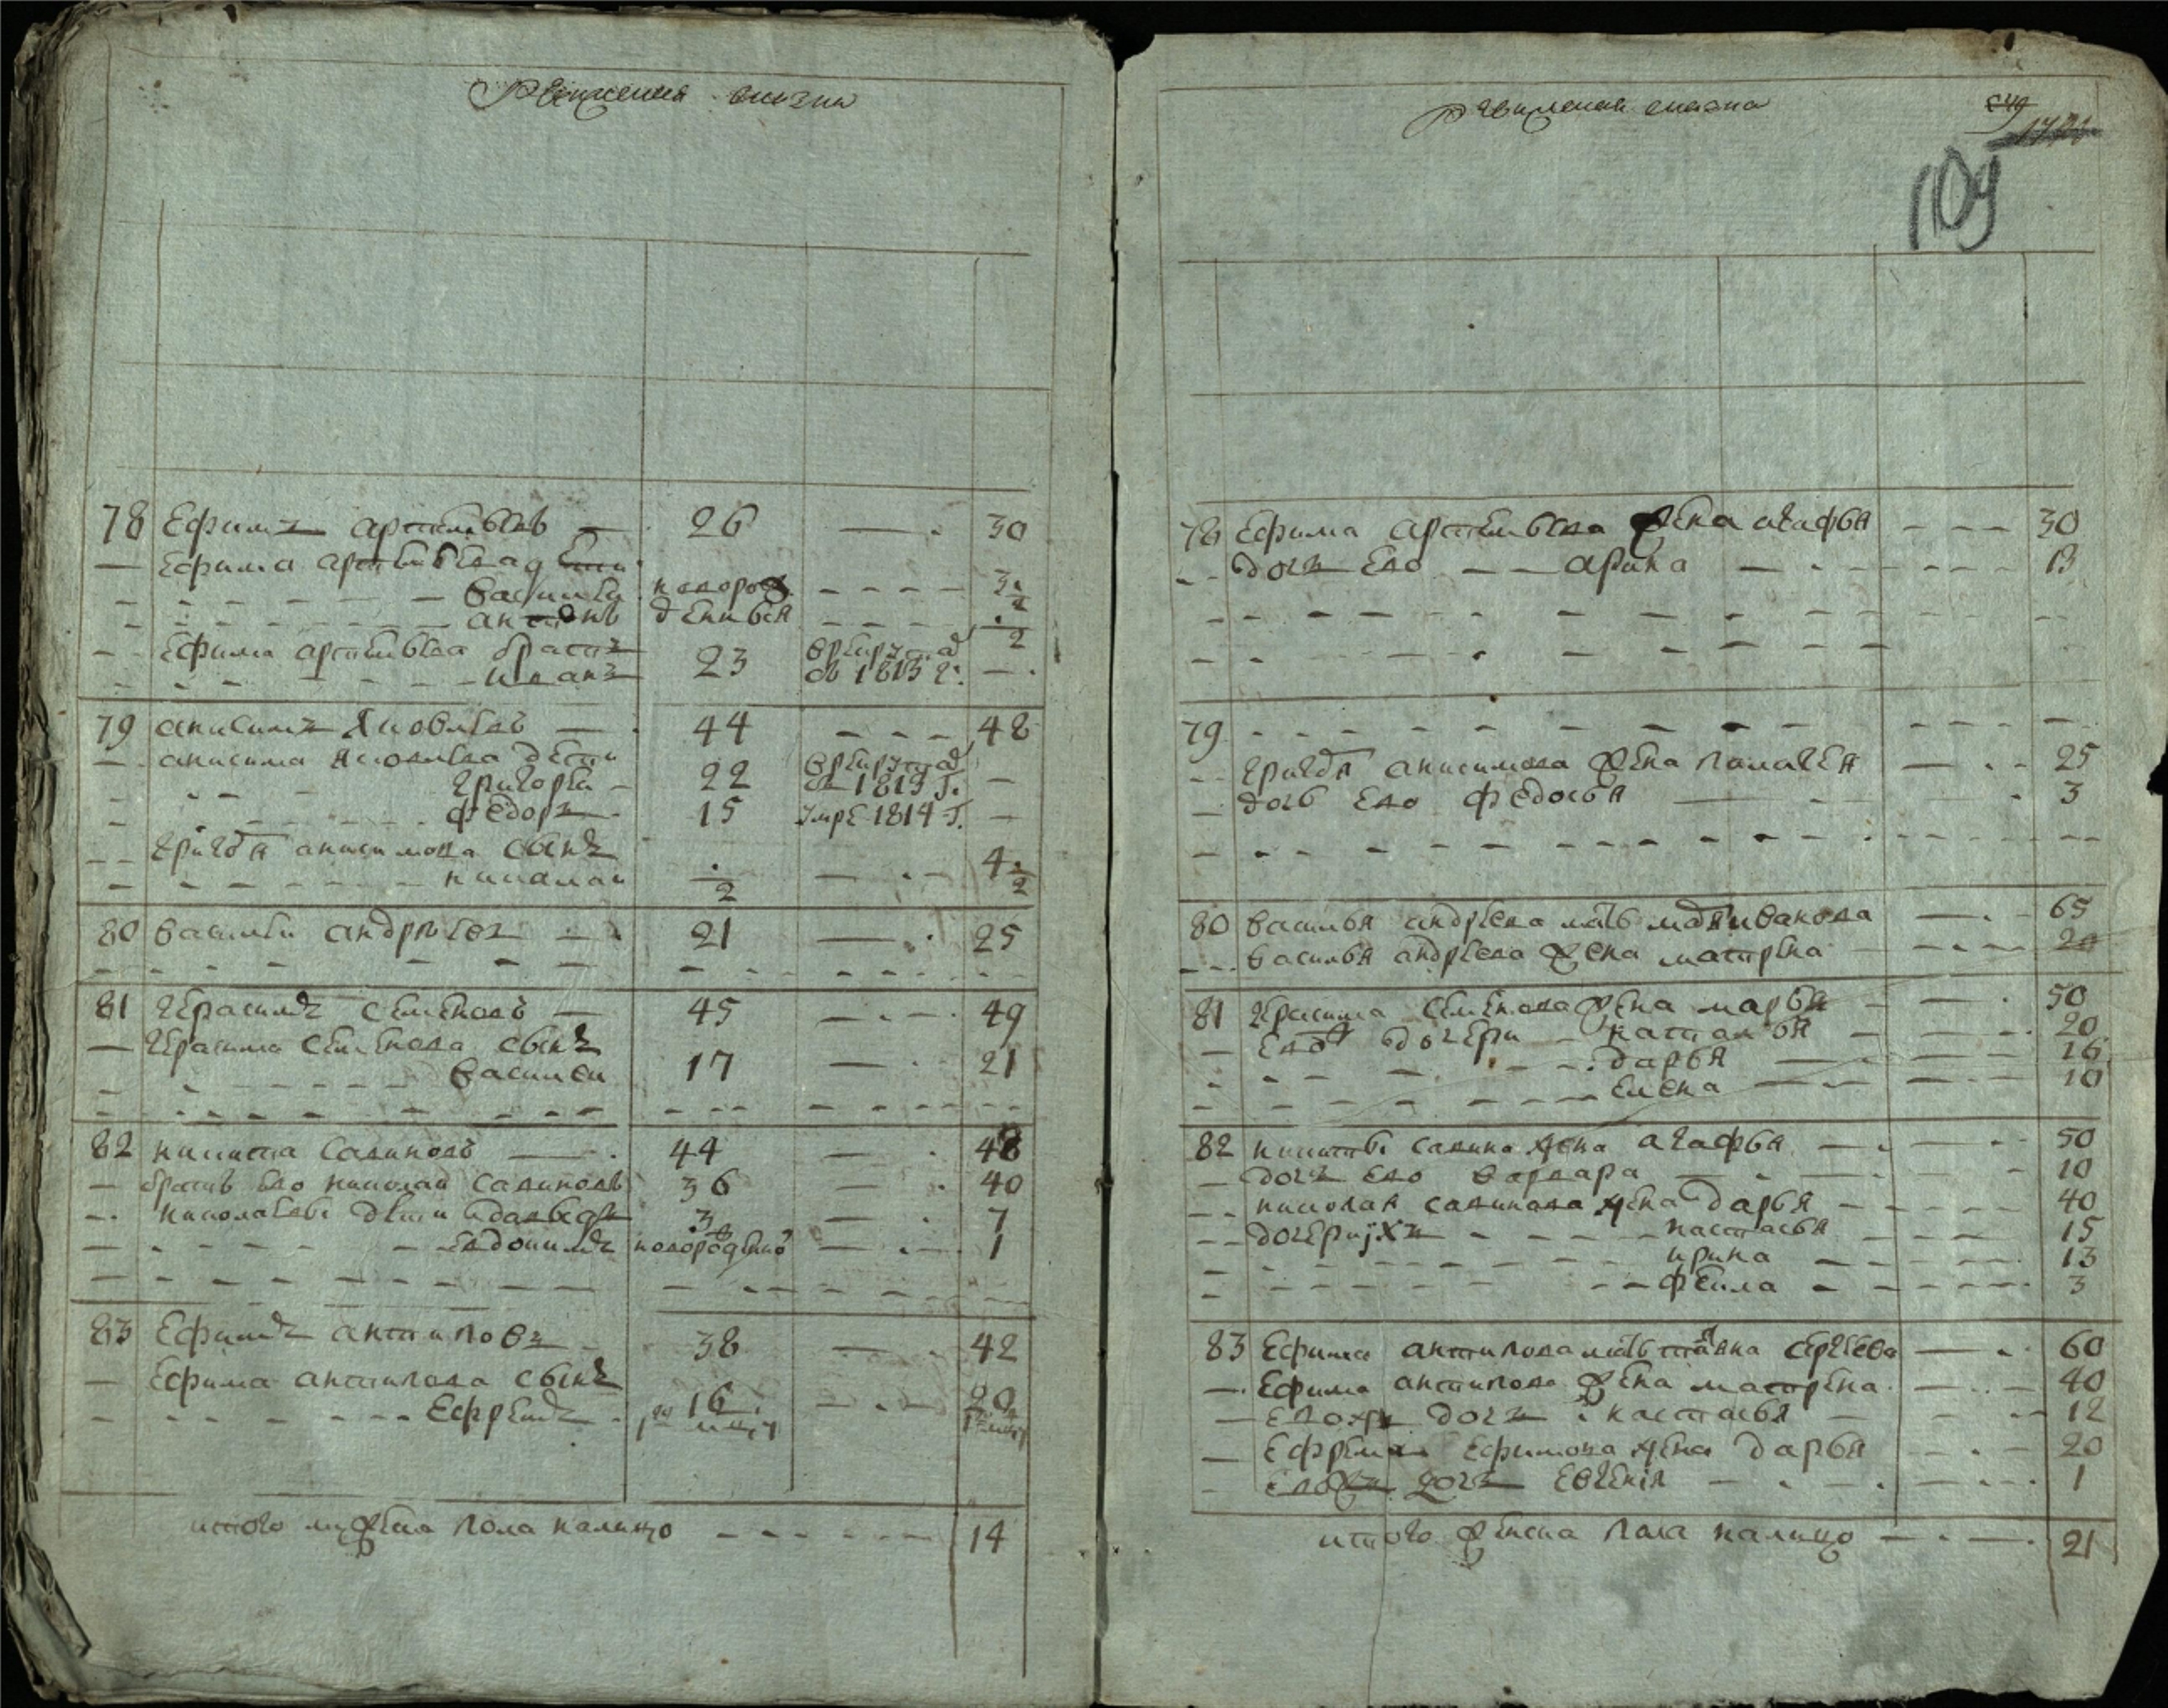 Ревижская сказка
78 Ефимъ артемьевъ — 26 — 30
— Ефима артемьева дети
василеи новорож 3 ½
антонъ денныя ½
Ефима артемьева братъ
иванъ 23 врекруты од въ 1813 г. —
79 анисимъ Яковлевъ — 44 — 48
анисима яковлева дети
григореи — 22 врекруты од въ 1813 г. —
федоръ 15 умре 1814 г. —
григоя анисимова сынъ
николаи ½ — 4 ½
80 василеи андреевъ 21 — 25
81 герасимъ семеновъ — 45 — 49
— герасима семенова сынъ
василеи 17 — 21
82 никита савиновъ — 44 — 48
— братъ ево николаи савиновъ 36 — 40
николаевы дети 3 — 7
Евдокимъ новорожденной — 1
83 Ефимъ антиповъ 38 — 42
— Ефима антипова сынъ
Ефремъ 16 — 20
итого мужеска пола налицо 14
Ревижская сказка
109
78 Ефима артемьева жена агафья 30
дочь Ево — арина — 13
79 — —
григоя анисимова жена палагея — 25
дочь Ево федосья — 3
80 василья андреева мать мария иванова — 65
василья андреева жена матрена 20
81 герасима семенова жена марья — 50
Ево дочери наталья — 20
дарья — 16
Елена — 10
82 никиты савина жена агафья — 50
дочь Ево варвара — 10
николая савинова жена дарья — 40
дочери ихъ настасья 15
ирина 13
фекла 3
83 Ефима антипова мать сергеева — 60
Ефима антипова жена матрена — 40
дочь настасья — 12
Ефрема Ефимова жена дарья 20
дочь Евгенiя — 1
итого женска пола налицо — 21